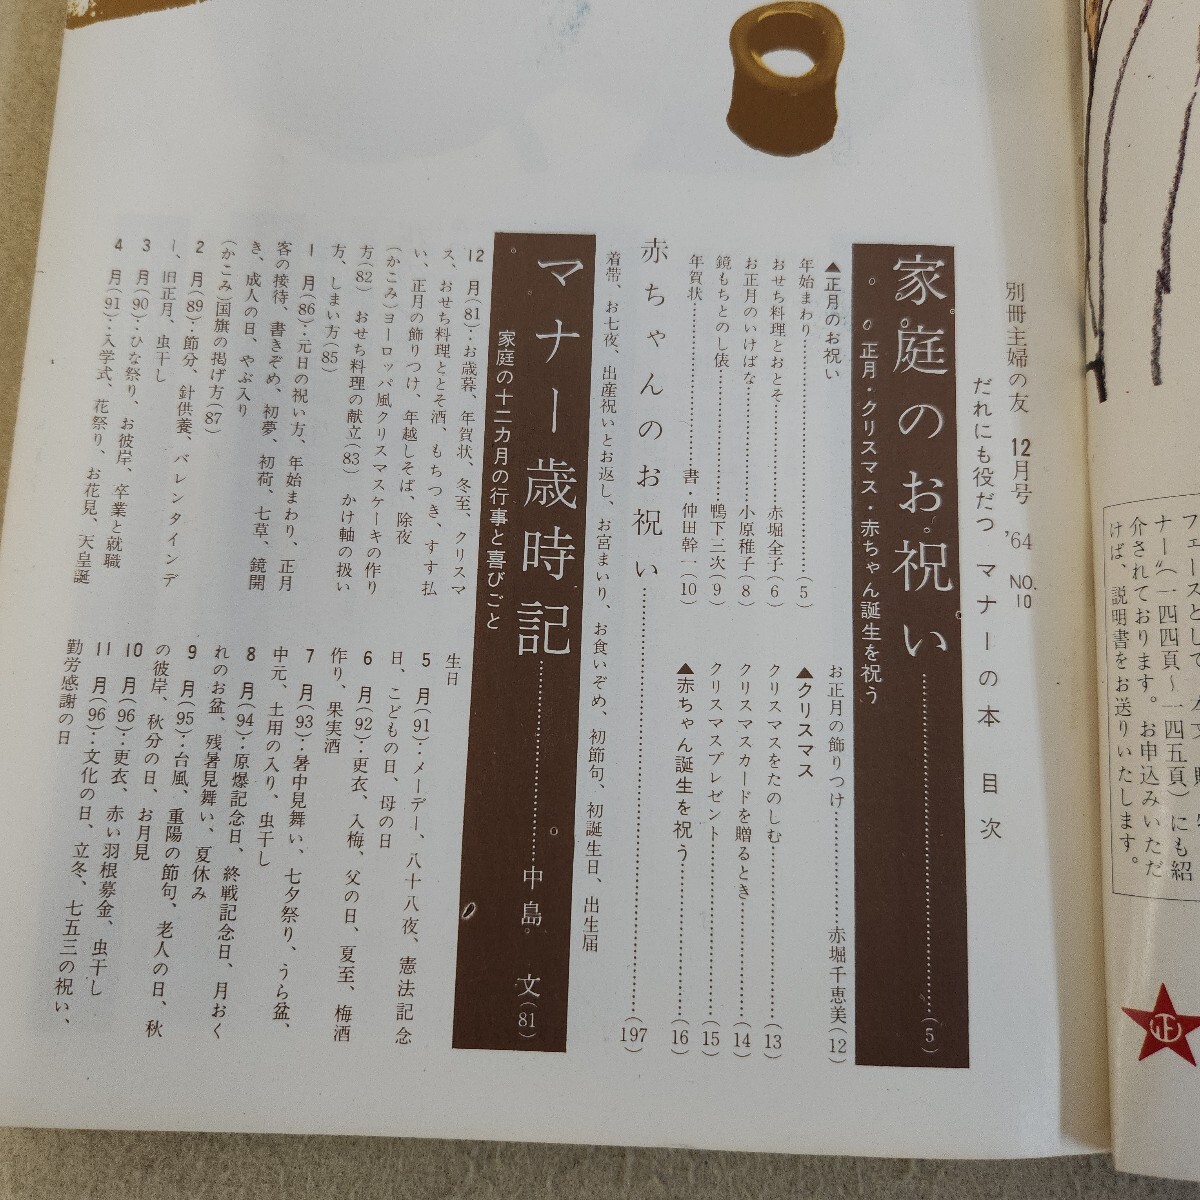 別冊主婦の友 12月号 '64 NO. 10
だれにも役だつ マナーの本 目次
家庭のお祝い……(5)
正月・クリスマス・赤ちゃん誕生を祝う
▲正月のお祝い
年始まわり……(5)
おせち料理とおとそ……赤堀全子(6)
お正月のいけばな……小原稚子(8)
鏡もちとのし俵……鴨下三次(9)
年賀状……書・仲田幹一(10)
お正月の飾りつけ……赤堀千恵美(12)
▲クリスマス
クリスマスをたのしむ……(13)
クリスマスカードを贈るとき……(14)
クリスマスプレゼント……(15)
▲赤ちゃん誕生を祝う……(16)
赤ちゃんのお祝い……(197)
着帯、お七夜、出産祝いとお返し、お宮まいり、お食いぞめ、初節句、初誕生日、出生届
マナー歳時記……中島 文(81)
家庭の十二カ月の行事と喜びごと
12月(81)‥お歳暮、年賀状、冬至、クリスマ
ス、おせち料理ととそ酒、もちつき、すす払
い、正月の飾りつけ、年越しそば、除夜
(かこみ)ヨーロッパ風クリスマスケーキの作り
方(82) おせち料理の献立(83) かけ軸の扱い
方、しまい方(85)
1月(86)‥元日の祝い方、年始まわり、正月
客の接待、書きぞめ、初夢、初荷、七草、鏡開
き、成人の日、やぶ入り
(かこみ)国旗の掲げ方(87)
2月(89)‥節分、針供養、バレンタインデ
ー、旧正月、虫干し
3月(90)‥ひな祭り、お彼岸、卒業と就職
4月(91)‥入学式、花祭り、お花見、天皇誕
生日
5月(91)‥メーデー、八十八夜、憲法記念
日、こどもの日、母の日
6月(92)‥更衣、入梅、父の日、夏至、梅酒
作り、果実酒
7月(93)‥暑中見舞い、七夕祭り、うら盆、
中元、土用の入り、虫干し
8月(94)‥原爆記念日、終戦記念日、月おく
れのお盆、残暑見舞い、夏休み
9月(95)‥台風、重陽の節句、老人の日、秋
の彼岸、秋分の日、お月見
10月(96)‥更衣、赤い羽根募金、虫干し
11月(96)‥文化の日、立冬、七五三の祝い、
勤労感謝の日
ナー〟(一四四頁～一四五頁)にも紹
介されております。お申込みいただ
けば、説明書をお送りいたします。
正